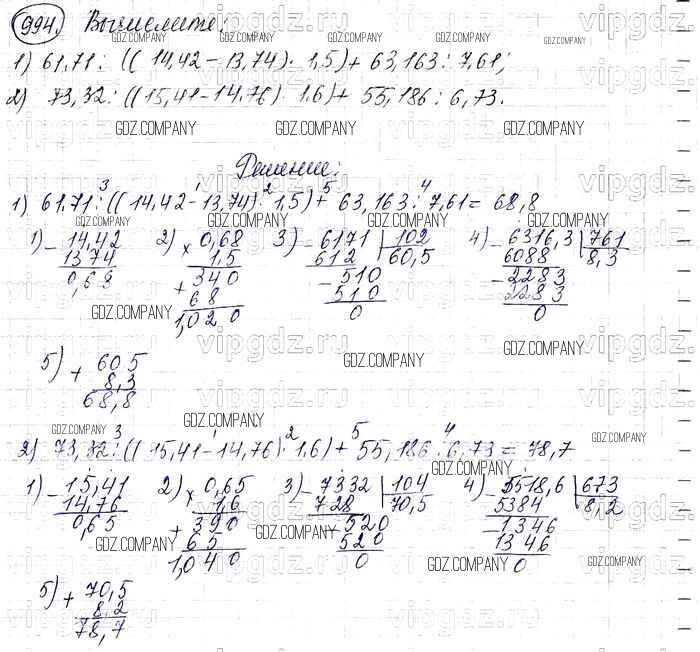 994. Вычислите:
1) 61,71 : ((14,42 - 13,74) · 1,5) + 63,163 : 7,61;
2) 73,32 : ((15,41 - 14,76) · 1,6) + 55,186 : 6,73.
Решение:
3 1 2 5 4
1) 61,71 : ((14,42 - 13,74) · 1,5) + 63,163 : 7,61 = 68,8
1) - 14,42 2) × 0,68 3) - 6171 | 102 4) - 6316,3 | 761
13 74 1,5 612 60,5 6088 8,3
0,68 + 340 - 510 - 2283
68 510 2283
1,020 0 0
5) + 60 5
8,3
68,8
3 1 2 5 4
2) 73,32 : ((15,41 - 14,76) · 1,6) + 55,186 : 6,73 = 78,7
1) - 15,41 2) × 0,65 3) - 7332 | 104 4) - 5518,6 | 673
14,76 1,6 728 70,5 5384 8,2
0,65 + 390 - 520 - 1346
65 520 1346
1,040 0 0
5) + 70,5
8,2
78,7
GDZ.COMPANY
vipgdz.ru